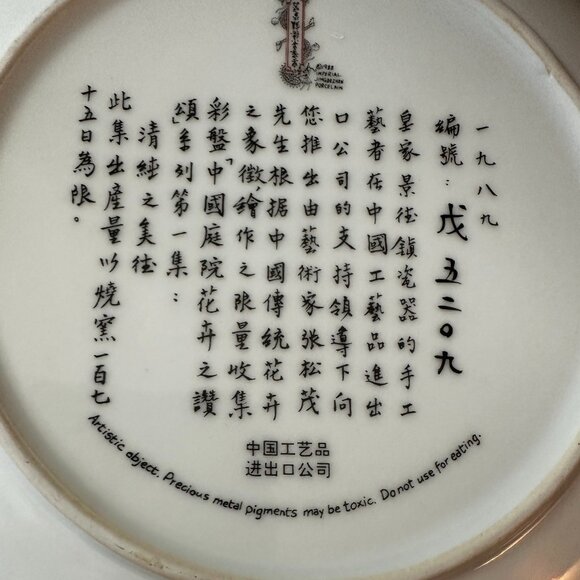 ©1988
IMPERIAL
JINGDEZHEN
PORCELAIN
一九八九
編號：戊五二〇九
皇家景徳鎮瓷器的手工
藝者在中國工藝品進出
口公司的支持領導下向
您推出由藝術家張松茂
先生根据中國傳統花卉
之象徵，繪作之限量收集
彩盤「中國庭院花卉之讚
頌」系列第一集：
清純之美徳
此集出産量以燒窯一百七
十五日為限。
中国工艺品
进出口公司
Artistic object. Precious metal pigments may be toxic. Do not use for eating.